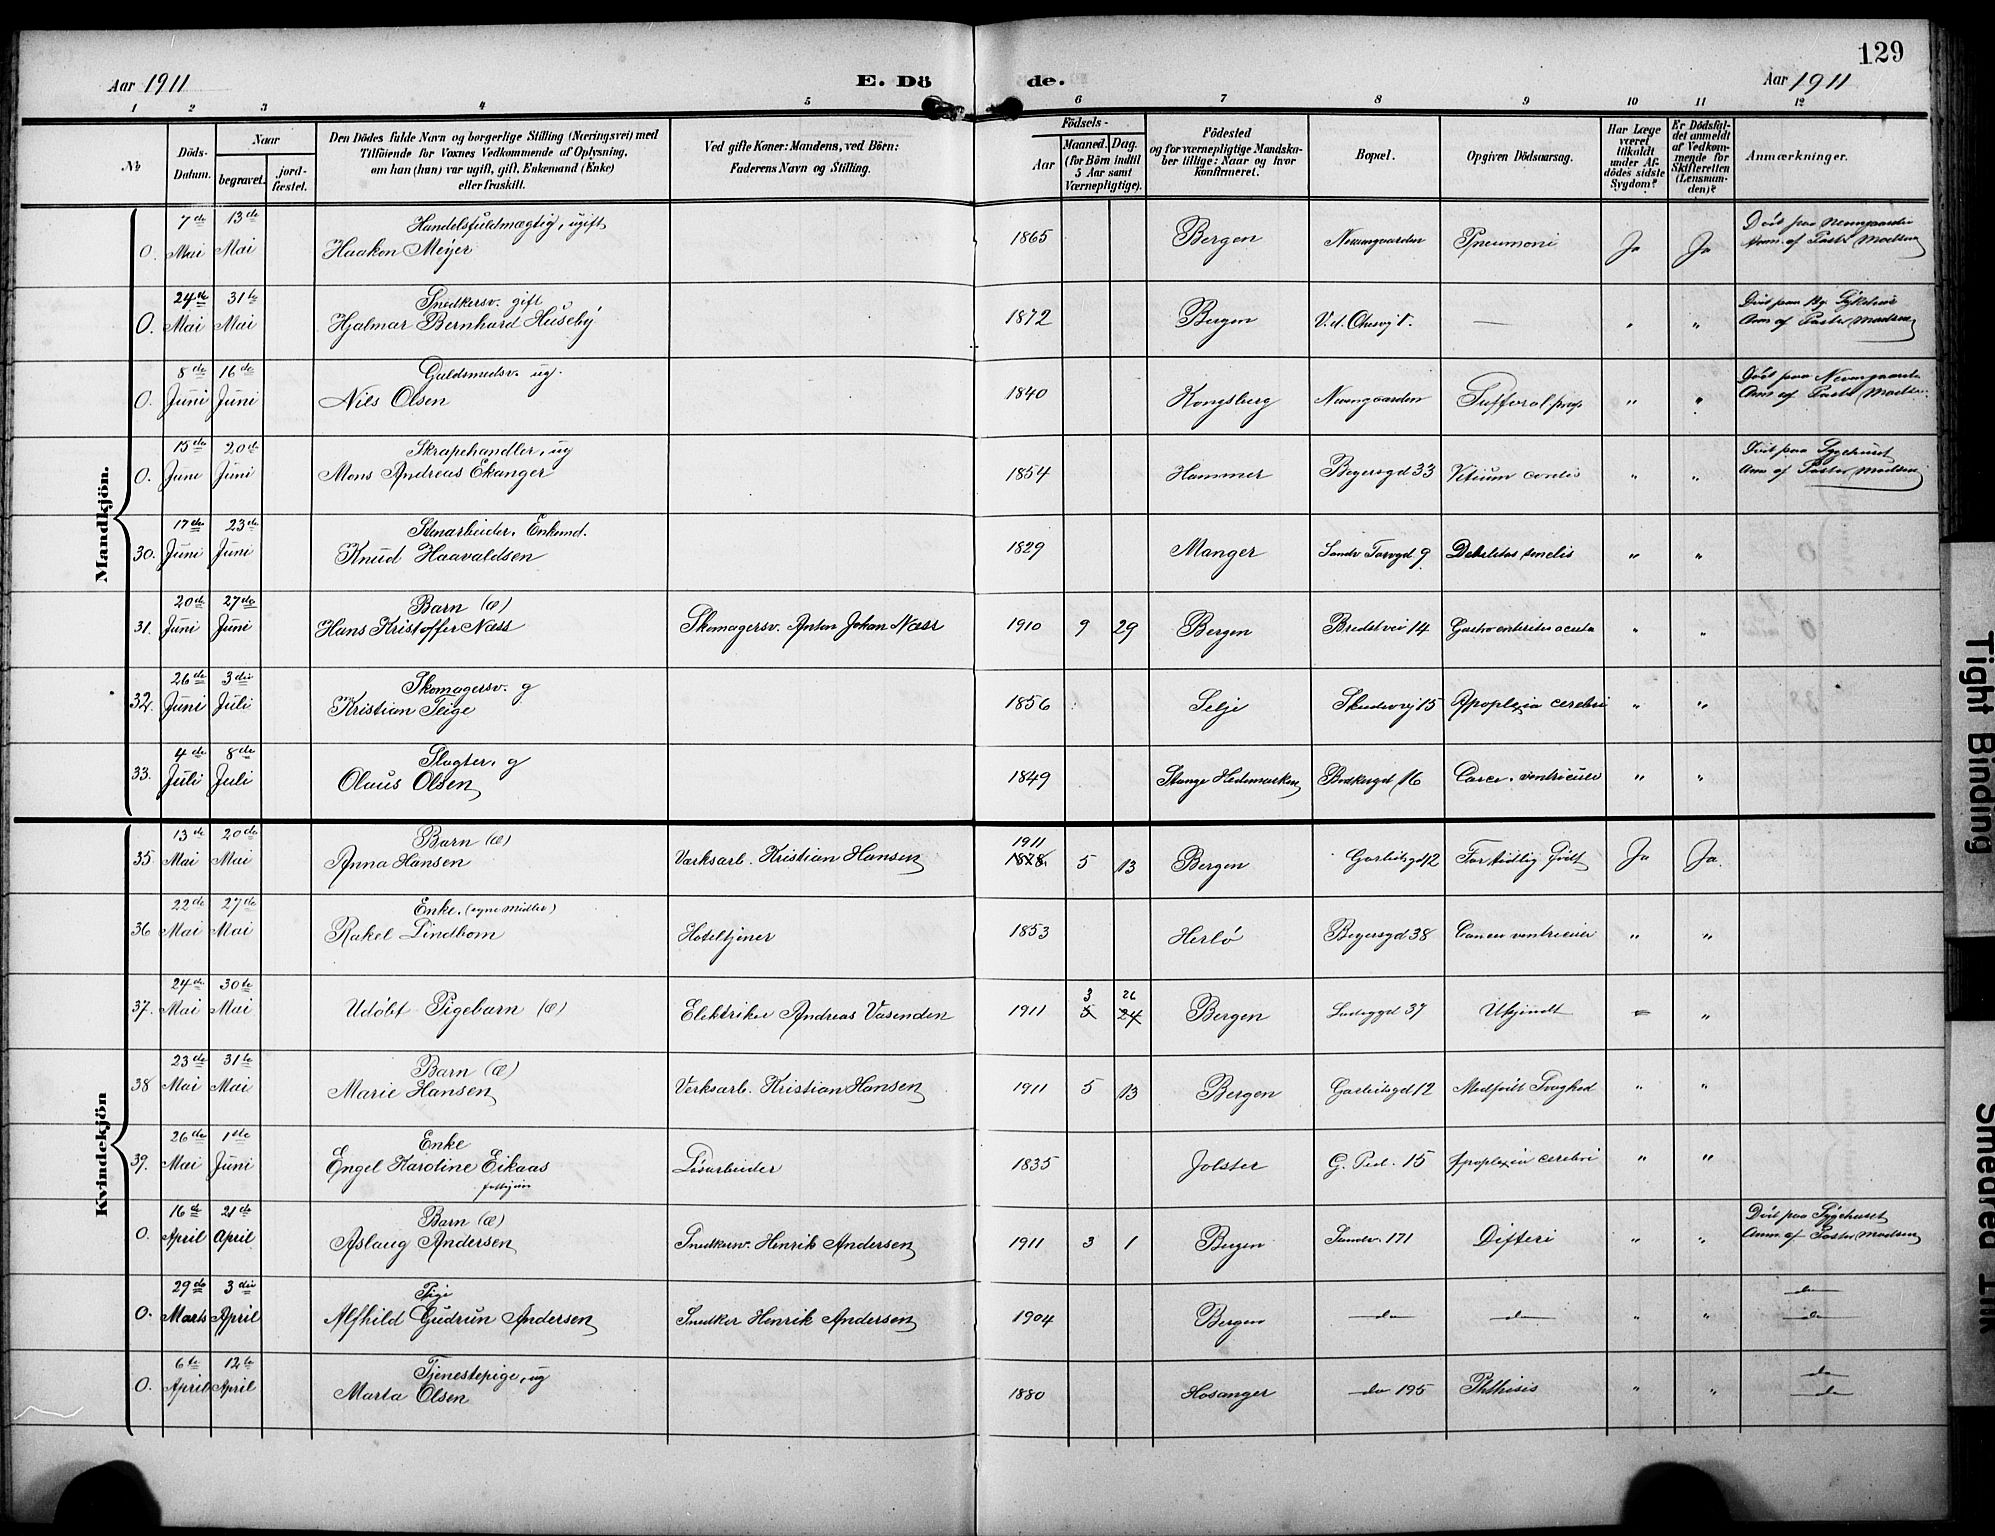 129
Aar 1911 E. Dö de. Aar 1911
1 2 3 4 5 6 7 8 9 10 11 12
№
Döds-Datum.
Naar
begravet.
jordfæstet.
Den Dödes fulde Navn og borgerlige Stilling (Næringsvei) med
Tilföiende for Voxnes Vedkommende af Oplysning,
om han (hun) var ugift, gift, Enkemand (Enke)
eller fraskilt.
Ved gifte Koner: Mandens, ved Börn:
Faderens Navn og Stilling.
Födsels-
Aar
Maaned. Dag.
(for Börn indtil
5 Aar samt
Værnepligtige).
Födested
og for værnepligtige Mandskaber tillige: Naar og hvor
Konfirmeret.
Bopæl.
Opgiven Dödsaarsag.
Har Læge
været
tilkaldt
under Afdödes sidste
Sygdom?
Er Dödsfaldet anmeldt
af Vedkommende for
Skifteretten
(Lensmanden)?
Anmærkninger.
Mandkjön.
7de 13de Handelsfuldmægtig, ugift
0. Mai Mai Haakon Meyer 1865 Bergen Nevengaarden Pneumoni Ja Ja
Död paa Nevengaarden
Anm. af Pastor Madsen
24de 31te Snedkersv. gift
0. Mai Mai Hjalmar Bernhard Huseby 1872 Bergen — " "
Anm af Pastor Madsen
8de 16de Guldsmedsv. ug.
0. Juni Juni Nils Olsen 1840 Kongsberg Nevengaarden " "
Död paa Nevengaarden
Anm af Pastor Madsen
15de 20de Skrapehandler, ug
0. June Juni Mons Andreas Ekanger 1854 Hammer Beyersgd 33 Vitium cordis " "
Död paa Sygehuset
Anm af Pastor Madsen
17de 23de Stenarbeider, Enkemd.
30. Juni Juni Knud Haavaldsen 1829 Manger Sandv Torvgd 9 Debilitas senilis " "
20de 27de Barn (æ)
31. Juni Juni Hans Kristoffer Næss Skomagersv. Anton Johan Næss 1910 9 29 Bergen Bredstvei 14 Gastroenteritis acuta " "
26de 3die Skomagersv. g
32. Juni Juli Kristian Teige 1856 Selje Skudevig 15 Apoplexia cerebri " "
4de 8de Slagter, g
33. Juli Juli Olaus Olsen 1849 Stange Hedemarken 16 Cancer ventriculi " "
Kvindekjön
13de 20de Barn (æ) 1911
35 Mai Mai Anna Hansen Værksarb. Kristian Hansen 1878. 5 13 Bergen Garbitsgd 12 For tidlig födt Ja Ja.
22de 27de Enke. (egne Midler)
36 Mai Mai Rakel Lindbom Hoteltjener 1853 Herlö Beyersgd 38 Cancer ventriculi " "
24de 30te 3 26
37. Mai Mai Udöbt Pigebarn (æ) Elektriker Andreas Vasenden 1911 5 24 Bergen Ladeggd 37 Ukjendt = "
23de 31te Barn (æ)
38 Mai Mai Marie Hansen Verksarb. Kristian Hansen 1911 5 13 Bergen Garbitsgd 12 Medfödt Svaghed " "
26de 1ste Enke
39. Mai Juni Engel Karoline Eikaas Lösarbeider 1835 Jolster G. Ped. 15 Apoplexia cerebri " "
16de 21de Barn (æ)
0. April April Aslaug Andersen Snedkersv. Henrik Andersen 1911 3 1 Bergen Sandv. 171 Difteri " "
Död paa Sygehuset
Anm. af Pastor Madsen
29de 3die Pige
0. Marts April Alfhild Gudrun Andersen Snedker Henrik Andersen 1904 Bergen — do — — do — " "
— do —
— do —
6te 12te Tjenestepige, ug
0. April April Marta Olsen 1880 Hosanger — do 195 Phthisis " "
— do —
— do —
Tight Binding
Smeared Ink